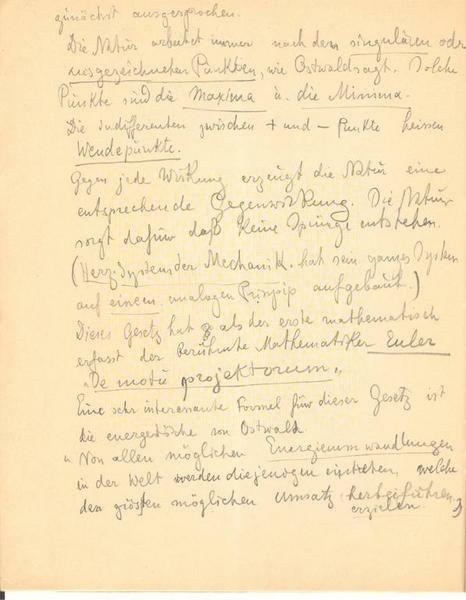 zunächst ausgesprochen.
Die Natur arbeitet immer nach dem singulären oder
ausgezeichneten Punkten, wie Ostwald sagt. Solche
Punkte sind die Maxima u. die Minima.
Die indifferenten zwischen + und - Punkte heissen
Wendepunkte.
Gegen jede Wirkung erzeugt die Natur eine
entsprechende Gegenwirkung. Die Natur
sorgt dafür daß keine Sprünge entstehen.
(Herz System der Mechanik. hat sein ganzes System
auf einem analogen Prinzip aufgebaut.)
Dieses Gesetz hat als der erste mathematisch
erfasst der berühmte Mathematiker Euler
"De motu projektorum"
Eine sehr interessante Formel für dieser Gesetz ist
die energetische von Ostwald
"Von allen möglichen Energieumwandlungen
in der Welt werden diejenigen eintreten, welche
den grösten möglichen Umsatz herbeiführen
erzielen."